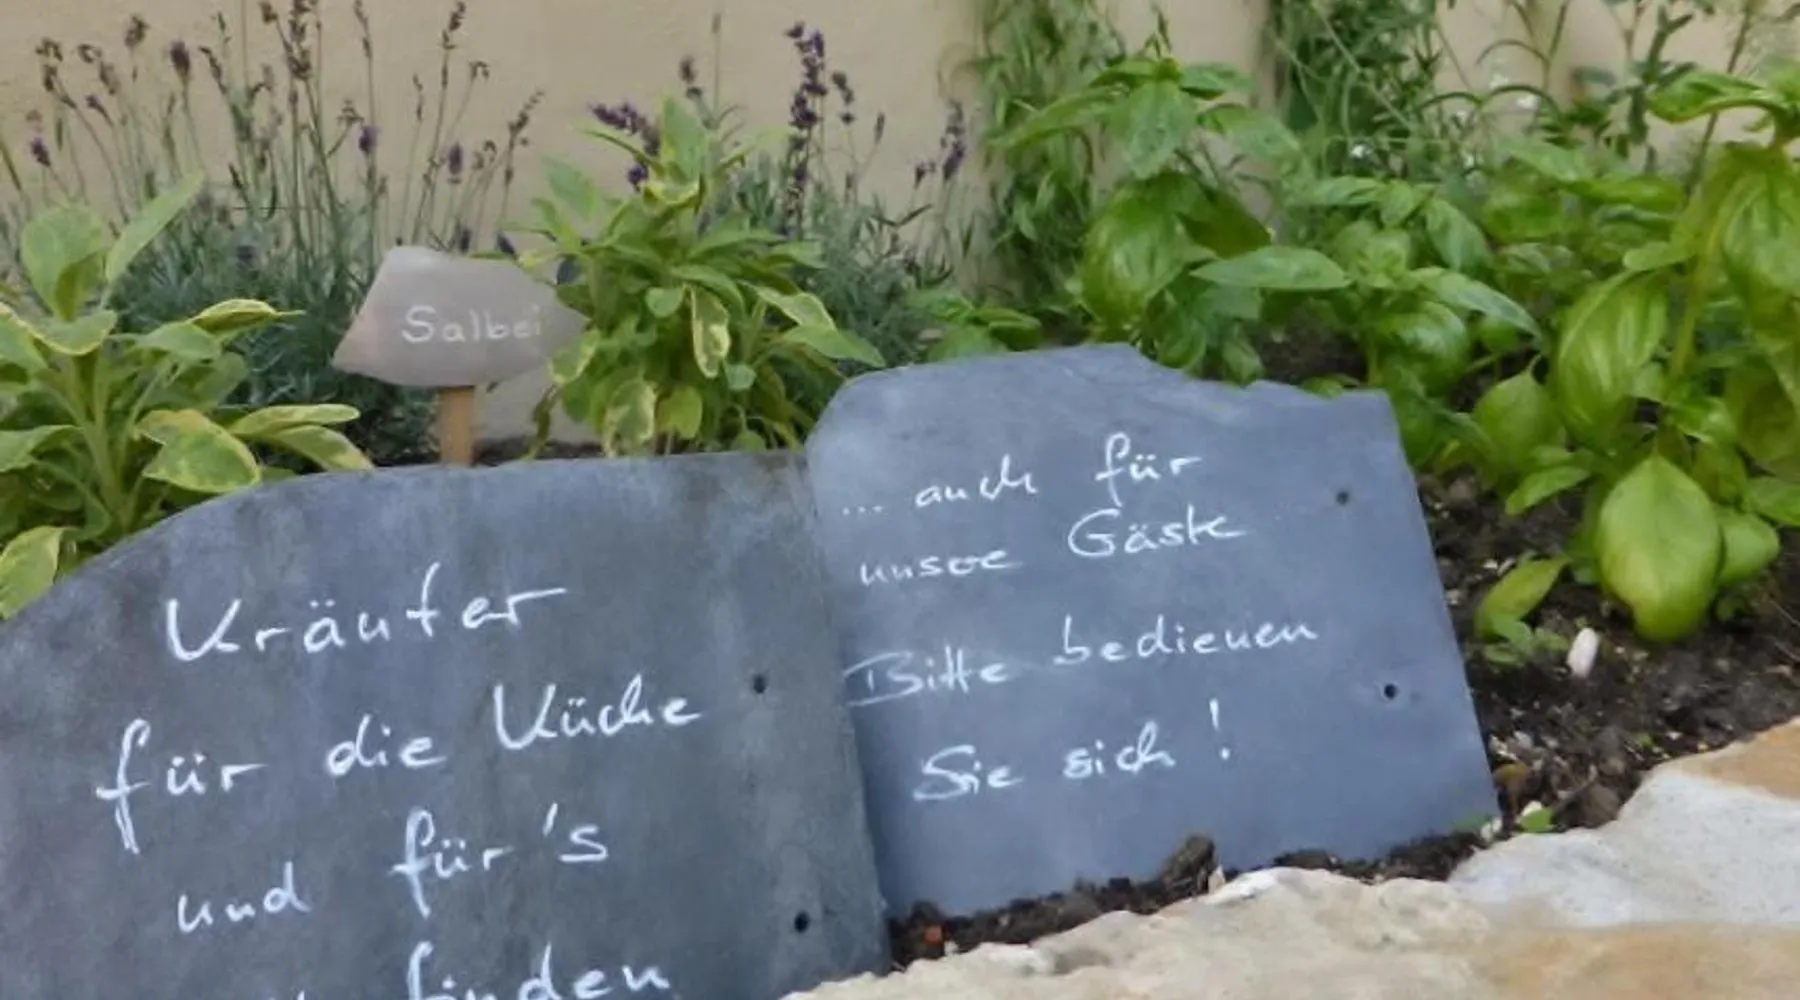 Salbei
Kräuter
für die Küche
und für's
finden
... auch für
unsere Gäste
Bitte bedienen
Sie sich !